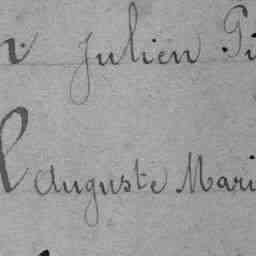 Julien
Auguste Mari